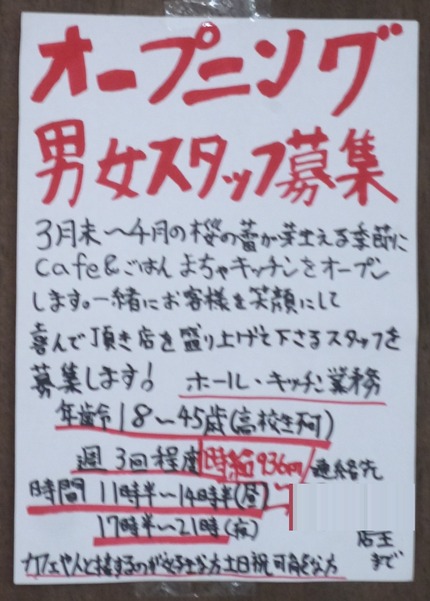 オープニング
男女スタッフ募集
3月末〜4月の桜の蕾が芽生える季節に
cafe&ごはん まちゃキッチンをオープン
します。一緒にお客様を笑顔にして
喜んで頂き店を盛り上げて下さるスタッフを
募集します! ホール・キッチン業務
年齢18〜45歳(高校生不可)
週3回程度 時給936円 連絡先
時間 11時半〜14時半(昼)
17時半〜21時(夜) 店主
まで
カフェや人と接するのが好きな方土日祝可能な方